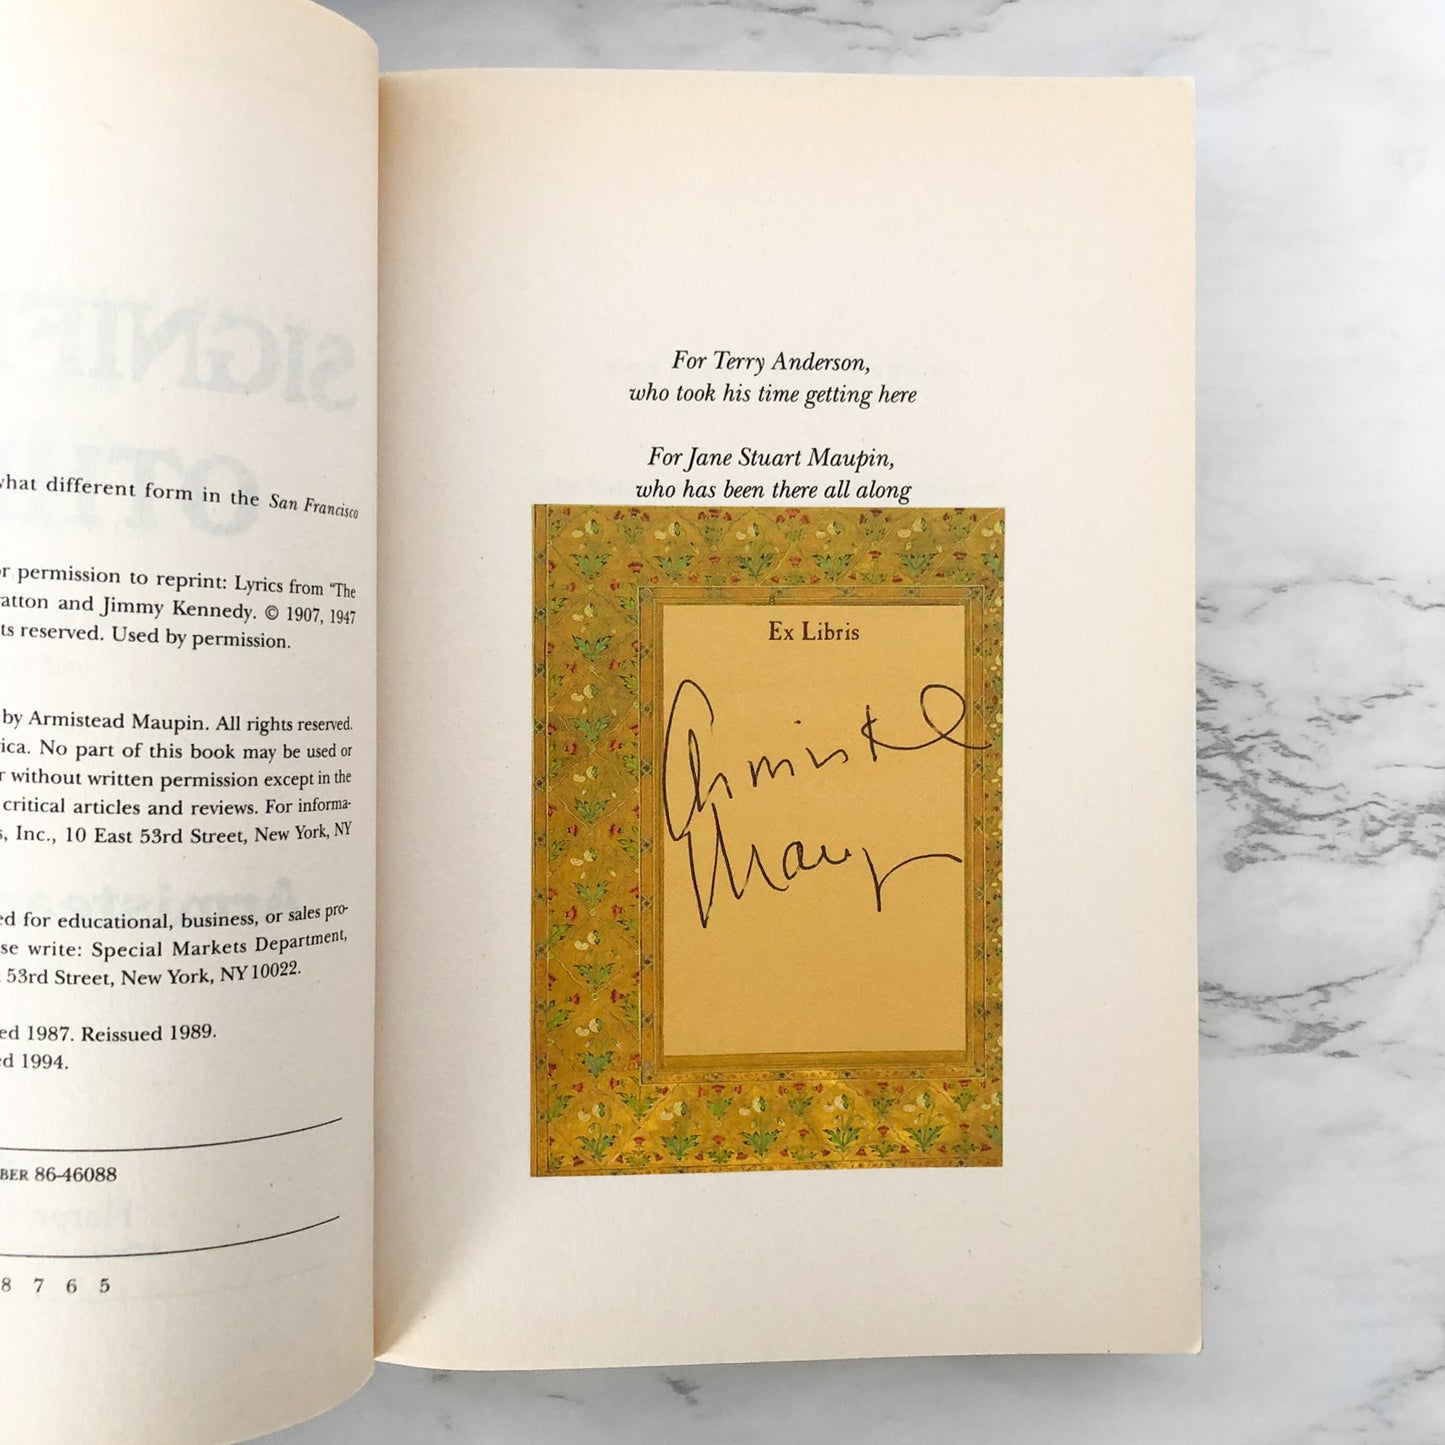 what different form in the San Francisco
permission to reprint: Lyrics from "The
and Jimmy Kennedy. © 1907, 1947
reserved. Used by permission.
by Armistead Maupin. All rights reserved.
No part of this book may be used or
without written permission except in the
critical articles and reviews. For informa-
Inc., 10 East 53rd Street, New York, NY
for educational, business, or sales pro-
write: Special Markets Department,
53rd Street, New York, NY 10022.
1987. Reissued 1989.
1994.
BER 86-46088
8 7 6 5
For Terry Anderson,
who took his time getting here
For Jane Stuart Maupin,
who has been there all along
Ex Libris
Armistead
Maupin